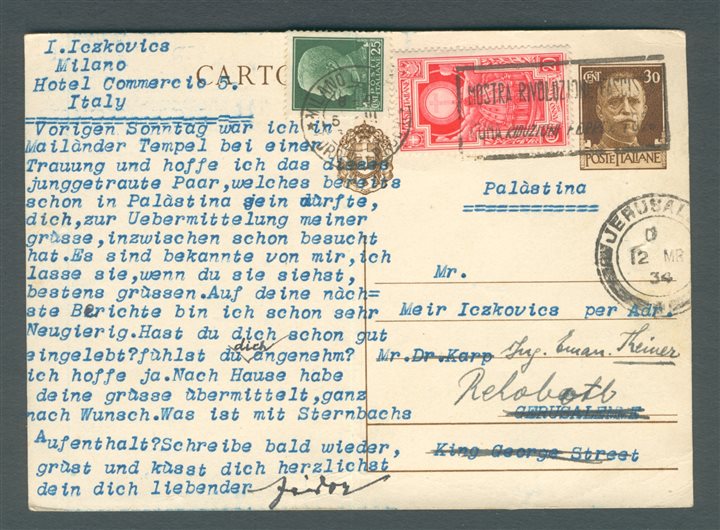 I.Iczkovics
Milano
Hotel Commercio 5.
Italy
Vorigen Sonntag war ich in
Mailänder Tempel bei einer
Trauung und hoffe ich das dieses
junggetraute Paar,welches bereits
schon in Palàstina sein dürfte,
dich,zur Uebermittelung meiner
grüsse,inzwischen schon besucht
hat.Es sind bekannte von mir,ich
lasse sie,wenn du sie siehst,
bestens grüssen.Auf deine näch=
ste Berichte bin ich schon sehr
Neugierig.Hast du dich schon gut
eingelebt?fühlst du dich angenehm?
ich hoffe ja.Nach Hause habe
deine grüsse übermittelt,ganz
nach Wunsch.Was ist mit Sternbachs
Aufenthalt?Schreibe bald wieder,
grüst und küsst dich herzlichst
dein dich liebender
CARTO
25
MILANO
MOSTRA RIVOLUZIONE
CENT 30
POSTE ITALIANE
Palàstina
JERUSAL
12 MR
34
Mr.
Meir Iczkovics per Adr.
Mr. Dr. Karp Ing. Eman. Keiner
Rehoboth
GERUSALEMME
King George Street